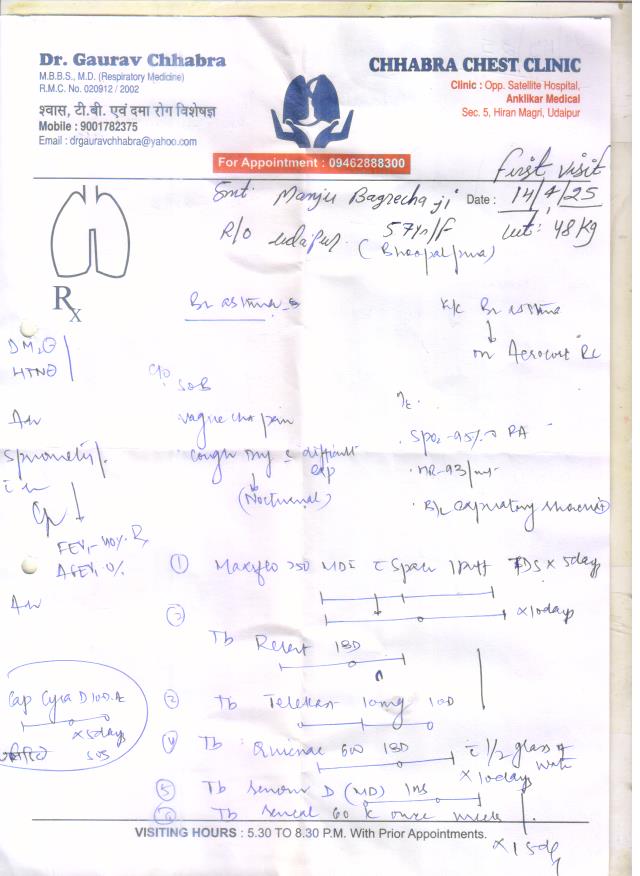 Dr. Gaurav Chhabra
M.B.B.S., M.D. (Respiratory Medicine)
R.M.C. No. 020912 / 2002
श्वास, टी.बी. एवं दमा रोग विशेषज्ञ
Mobile : 9001782375
Email : drgauravchhabra@yahoo.com
CHHABRA CHEST CLINIC
Clinic : Opp. Satellite Hospital,
Anklikar Medical
Sec. 5, Hiran Magri, Udaipur
For Appointment : 09462888300
First visit
Smt. Manju Bagrecha ji Date : 14/4/25
R/o Udaipur. 57yr/F wt: 48 kg
(Bhoopalpura)
Rx
Br asthma
K/c Br asthma
on Aerocort
DM
HTN
c/o
SOB
vague chest pain
cough dry c difficult exp
(Nocturnal)
SpO2 - 95% RA
HR - 93/mt
B/L expiratory
Spirometry
FEV1 - 40%
FEV1 - 0%
① MDI c Spacer 1 puff TDS x 5days
x 10days
Tb 1BD
② Tb Telekast 10mg 1OD
Cap Cyra D 1OD
x 5days
SOS
④ Tb 600 1BD c 1/2 glass of water
x 10days
⑤ Tb D (MD) 1HS
⑥ Tb 60 K once week
x 15d
VISITING HOURS : 5.30 TO 8.30 P.M. With Prior Appointments.